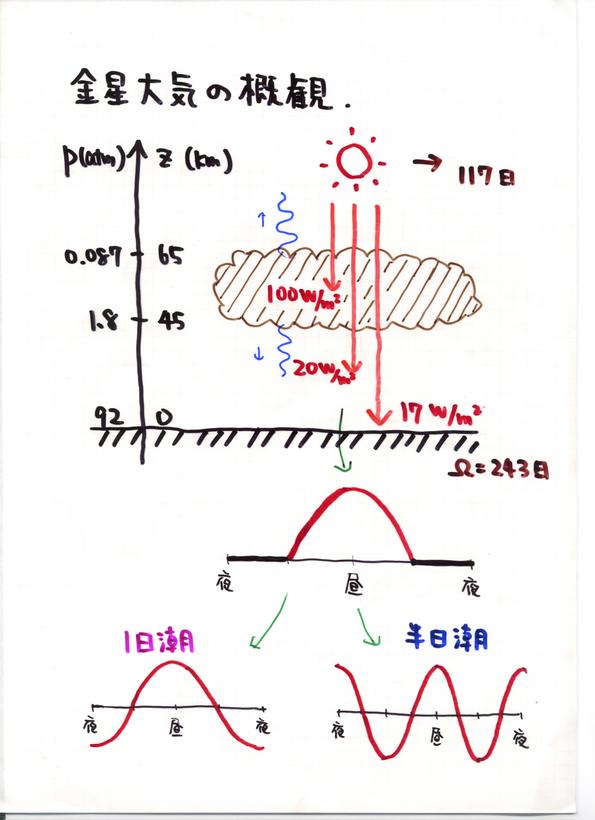 金星大気の概観.
p(atm) z (km)
→ 117日
0.087 65
100W/m²
1.8 45
20W/m²
92 0
17 W/m²
Ω=243日
夜 昼 夜
1日潮 半日潮
夜 昼 夜
夜 昼 夜